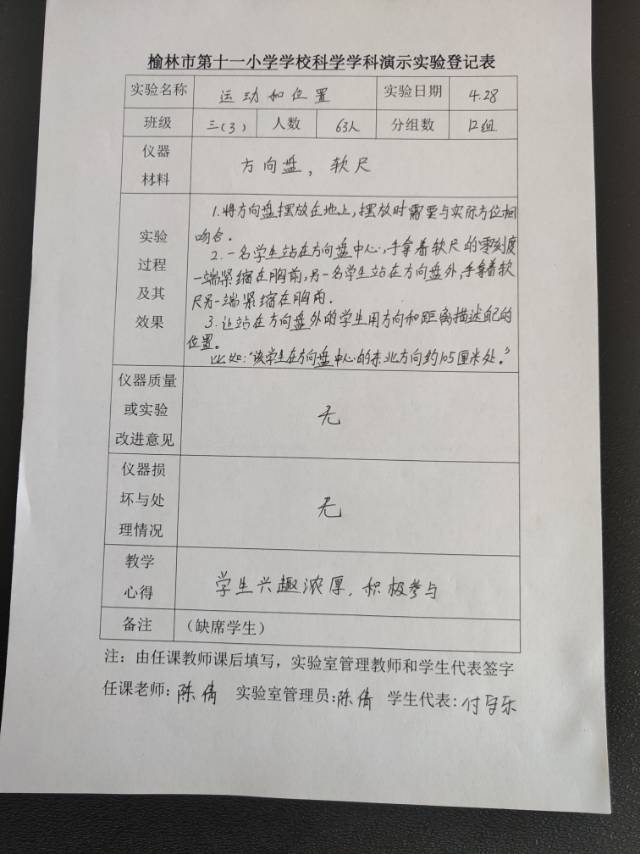 榆林市第十一小学学校科学学科演示实验登记表
实验名称 运动和位置 实验日期 4.28
班级 三(3) 人数 63人 分组数 12组
仪器
材料
方向盘，软尺
实验
过程
及其
效果
1.将方向盘摆放在地上，摆放时需要与实际方位相
吻合。
2.一名学生站在方向盘中心，手拿着软尺的零刻度
一端紧缩在胸前，另一名学生站在方向盘外，手拿着软
尺另一端紧缩在胸内。
3.让站在方向盘外的学生用方向和距离描述自己的
位置。
比如："该学生在方向盘中心的东北方向约105厘米处。"
仪器质量
或实验
改进意见
无
仪器损
坏与处
理情况
无
教学
心得
学生兴趣浓厚，积极参与
备注 （缺席学生）
注：由任课教师课后填写，实验室管理教师和学生代表签字
任课老师：陈倩 实验室管理员：陈倩 学生代表：付乐